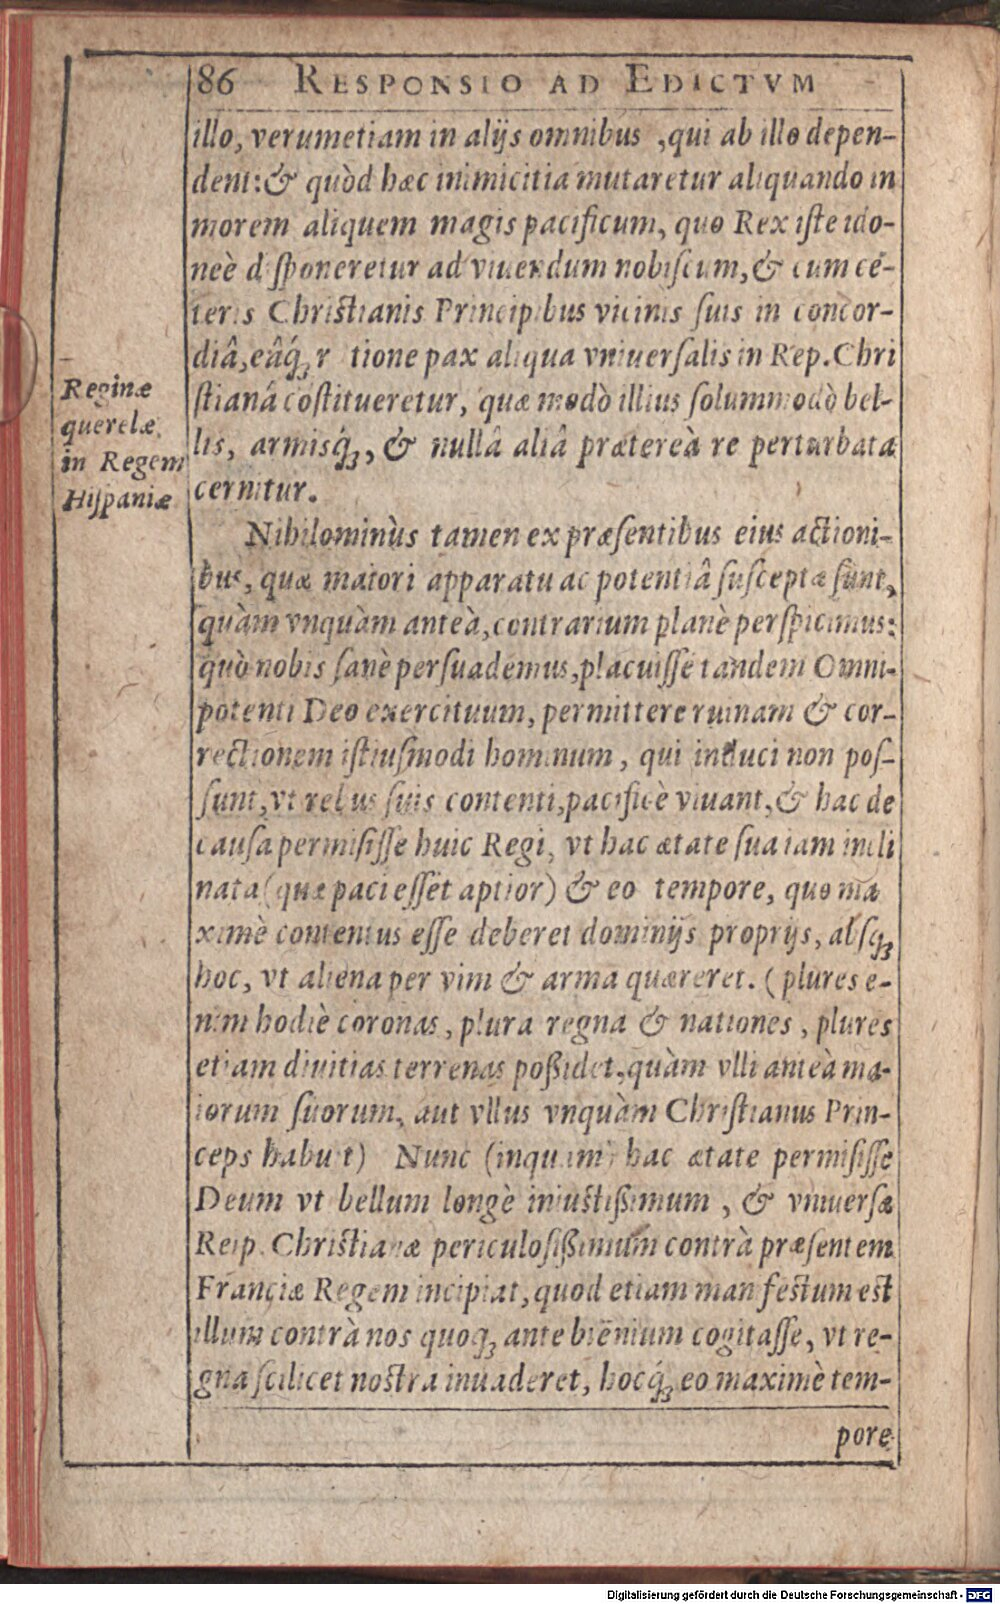 86 RESPONSIO AD EDICTVM
illo, verumetiam in alijs omnibus, qui ab illo depen-
dent: & quòd hæc inimicitia mutaretur aliquando in
morem aliquem magis pacificum, quo Rex iſte ido-
neè diſponeretur ad viuendum nobiſcum, & cum cę-
teris Chriſtianis Principibus vicinis ſuis in concor-
diâ, eâq́; r tione pax aliqua vniuerſalis in Rep. Chri
ſtianâ cōſtitueretur, quæ modò illius ſolummodò bel-
lis, armisq́;, & nullâ aliâ prætereà re perturbata
cernitur.
Reginæ
querelæ
in Regem
Hiſpaniæ
Nihilominùs tamen ex præſentibus eius actioni-
bus, quæ maiori apparatu ac potentiâ ſuſceptæ ſunt,
quàm vnquàm anteà, contrarium planè perſpicimus:
quò nobis ſanè perſuademus, placuiſſe tandem Omni-
potenti Deo exercituum, permittere ruinam & cor-
rectionem iſtiuſmodi hominum, qui induci non poſ-
ſunt, vt rebus ſuis contenti, pacificè viuant, & hac de
cauſa permiſiſſe huic Regi, vt hac ætate ſua iam incli
nata (quæ paci eſſet aptior) & eo tempore, quo ma
ximè contentus eſſe deberet dominijs proprijs, abſq;
hoc, vt aliena per vim & arma quæreret. (plures e-
nim hodiè coronas, plura regna & nationes, plures
etiam diuitias terrenas poßidet, quàm vlli anteà ma-
iorum ſuorum, aut vllus vnquàm Chriſtianus Prin-
ceps habuit) Nunc (inquam) hac ætate permiſiſſe
Deum vt bellum longè iniuſtißimum, & vniuerſæ
Reip. Chriſtianæ periculoſißimum contrà præſentem
Franciæ Regem incipiat, quod etiam man feſtum eſt
illum contrà nos quoq; ante biēnium cogitaſſe, vt re-
gna ſcilicet noſtra inuaderet, hocq́; eo maximè tem-
pore
Digitalisierung gefördert durch die Deutsche Forschungsgemeinschaft - DFG